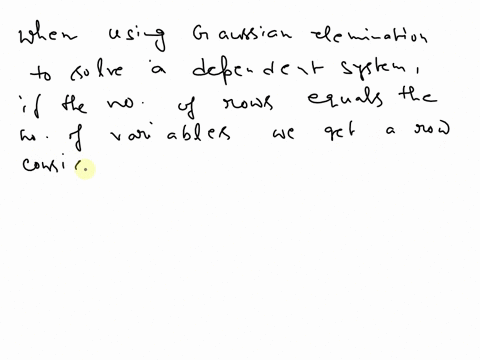 When using Gaussian elemination
to solve a dependent system,
if the no. of rows equals the
no. of variables we get a row
consis